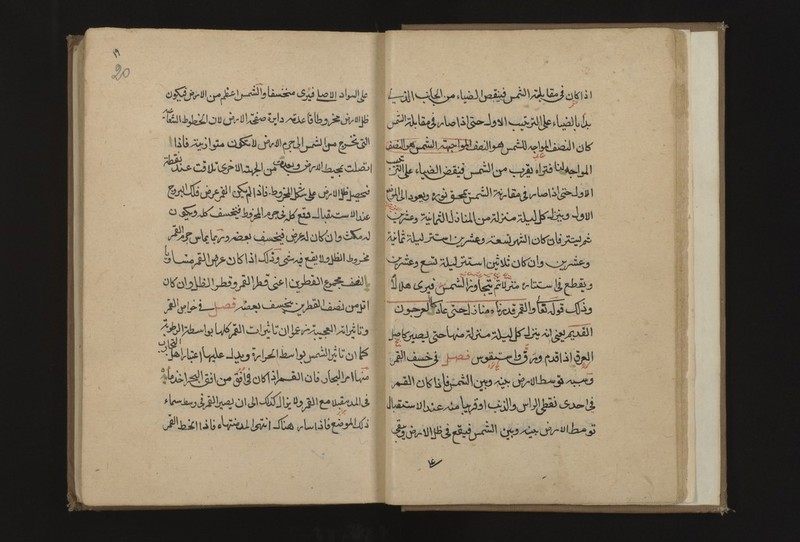 اذا كان في مقابلة الشمس فينقص الضياء من الجانب الذي
بدا بالضياء على الترتيب الاول حتى اذا صار في مقابلة الشمس
كان النصف المواجه للشمس هو النصف المواجه
المواجه لنا فتراه بقرب من الشمس فينقص الضياء على الترتيب
الاول حتى اذا صار في مقارنة الشمس يمحق نوره ويعود الى
الاول وينزل كل ليلة منزلة من المنازل الثمانية وعشرين
ثم يستتر فان كان الشهر تسعة وعشرين استتر ليلة ثمانية
وعشرين وان كان ثلاثين استتر ليلة تسع وعشرين
ويقطع في استتاره منزلا ثم يتجاوز الشمس فيرى هلالا
وذلك قوله تعالى والقمر قدرناه منازل حتى عاد كالعرجون
القديم يعنى انه ينزل كل ليلة منزلة منها حتى يصير كاصل
العذق اذا قدم ودق واستقوس فصل في خسف القمر
وسببه توسط الارض بينه وبين الشمس فاذا كان القمر
في احدى نقطتي الراس والذنب او قريبا منه عند الاستقبال
توسط الارض بينه وبين الشمس فيقع في ظل الارض ويبقى
20
على السواد الاصلي فيرى منخسفا والشمس اعظم من الارض فيكون
ظل الارض مخروطا قاعدته دايرة صفحة الارض لان الخطوط الشعاعية
التي تخرج من الشمس الى جرم الارض لا يكون متوازية فاذا
اتصلت بمحيط الارض ونفذت من الجهة الاخرى تلاقت عند نقطة
فيحصل ظل الارض على شكل المخروط فاذا لم يكن للقمر عرض فلك البروج
عند الاستقبال وقع كله في جرم المخروط فينخسف كله ويكون
له مكث وان كان له عرض فينخسف بعضه وربما يماس جرم القمر
مخروط الظل ولا يقع فيه شي وذلك اذا كان عرض القمر مساويا
لنصف مجموع القطرين اعنى قطر القمر وقطر الظل وان كان
اقل من نصف القطرين ينخسف بعضه فصل في خواص القمر
وتاثيراته العجيبة زعموا ان تاثيرات القمر كلها بواسطة الرطوبة
كما ان تاثير الشمس بواسطة الحرارة ويدل عليها اعتبار اهل التجارب
منها امر البحار فان القمر اذا كان في افق من افق البحر اخذ ماؤه
في المد مقبلا مع القمر ولا يزال كذلك الى ان يصير القمر في وسط سماء
ذلك الموضع فاذا صار هناك انتهى المد منتهاه فاذا انحط القمر